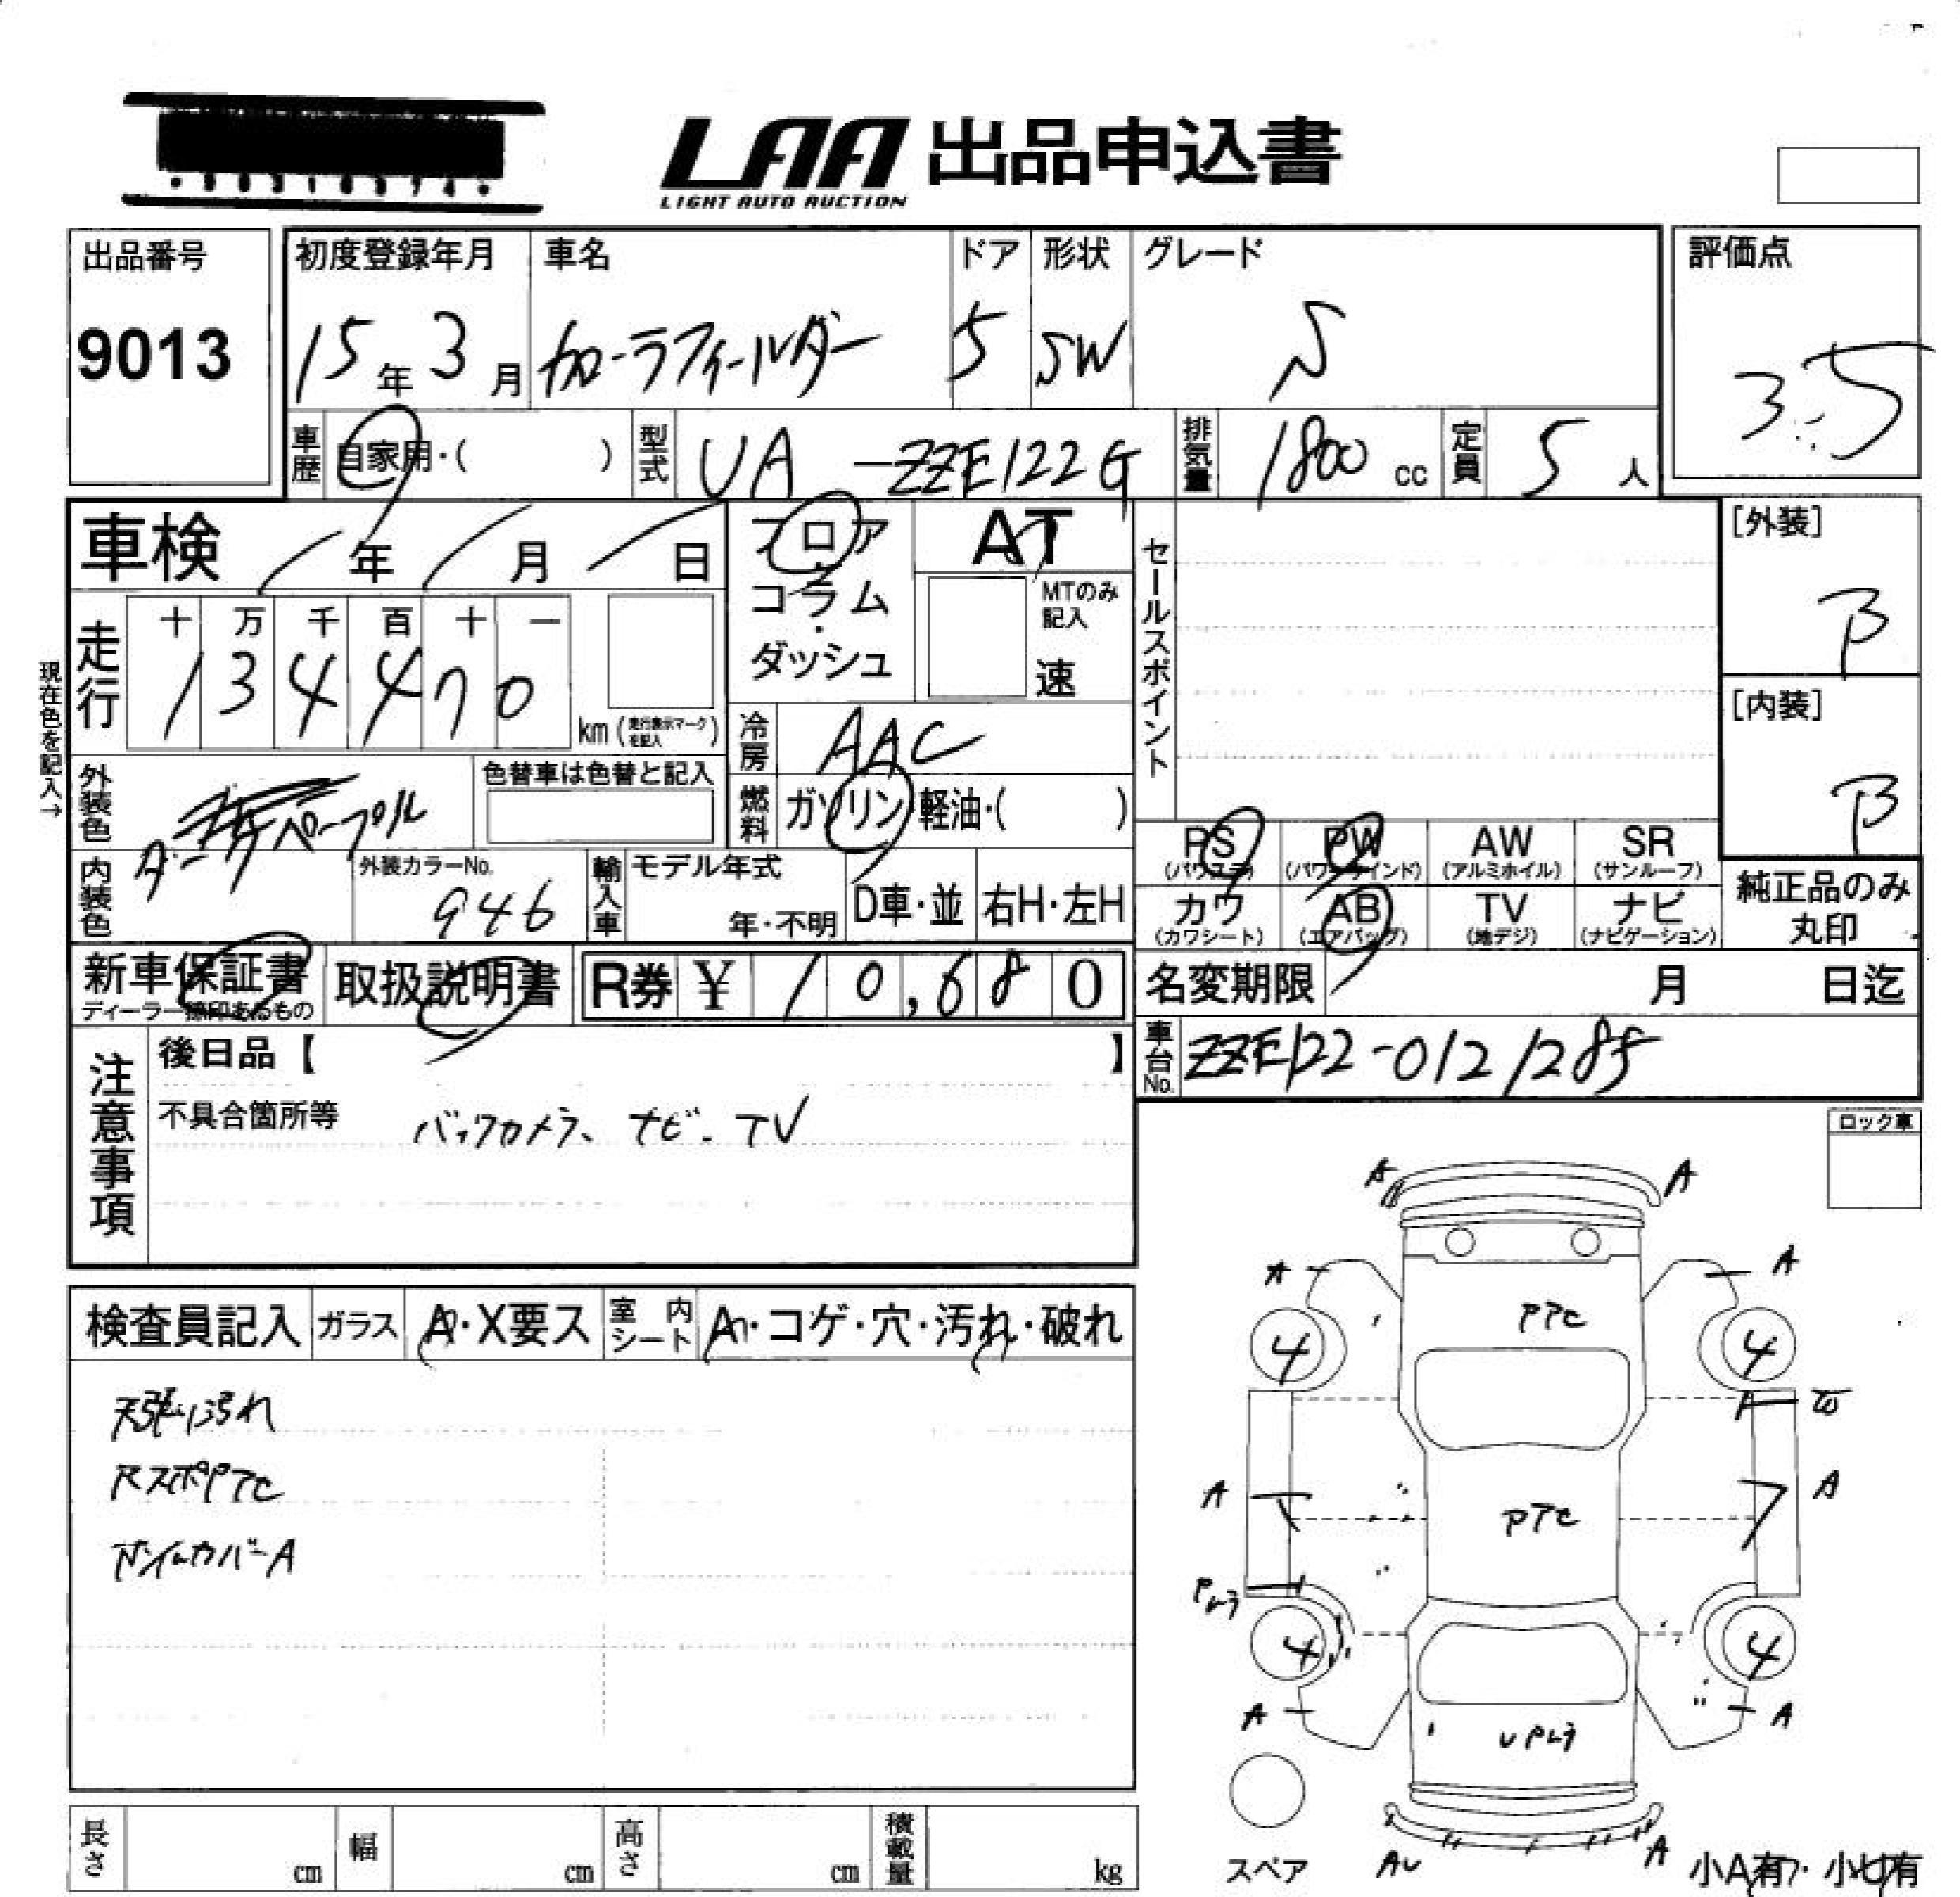 LAA 出品申込書
LIGHT AUTO AUCTION
出品番号
9013
初度登録年月
15年3月
車名
カローラフィールダー
ドア
5
形状
SW
グレード
S
評価点
3.5
車歴 自家用・( )
型式 UA-ZZE122G
排気量 1800 cc
定員 5 人
車検 年 月 日
フロア
コラム
・
ダッシュ
AT
MTのみ
記入
速
セールスポイント
[外装]
B
[内装]
B
現在色を記入→
走行
十 万 千 百 十 一
1 3 4 4 7 0
km (走行表示マークを記入)
冷房 AAC
燃料 ガソリン・軽油・( )
外装色 パープル
色替車は色替と記入
内装色
外装カラーNo.
946
輸入車
モデル年式
年・不明
D車・並
右H・左H
PS (パワステ)
PW (パワーウインド)
AW (アルミホイル)
SR (サンルーフ)
カワ (カワシート)
AB (エアバッグ)
TV (地デジ)
ナビ (ナビゲーション)
純正品のみ
丸印
新車保証書
ディーラー捺印あるもの
取扱説明書
R券 ¥ 10,680
名変期限 月 日迄
車台No. ZZE122-0121285
注意事項
後日品【 】
不具合箇所等
バックカメラ、ナビ、TV
ロック車
検査員記入
ガラス A・X要ス
室内シート A・コゲ・穴・汚れ・破れ
天張り汚れ
RスポPTC
A
A
A
A
PTC
4
4
A
A
PTC
4
4
A
A
A
スペア
小A有・小U有
長さ cm
幅 cm
高さ cm
積載量 kg